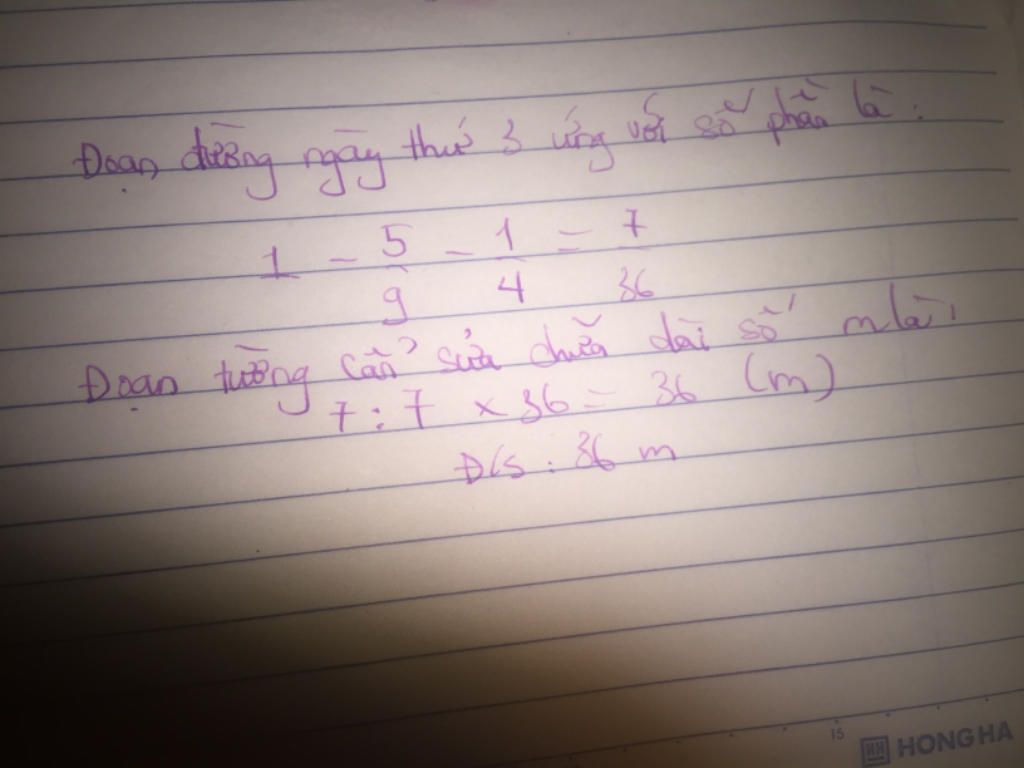 Đoạn đường ngày thứ 3 ứng với số phần là:
1 - 5/9 - 1/4 = 7/36
Đoạn tường cần sửa chữa dài số m là:
7 : 7 x 36 = 36 (m)
Đ/S : 36 m
15 HH HONG HA